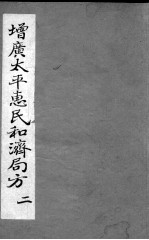 增廣太平惠民和濟局方 二